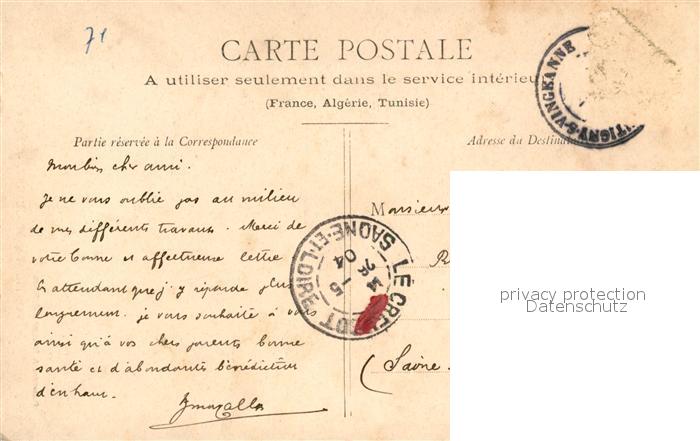 71
CARTE POSTALE
A utiliser seulement dans le service intérieur
(France, Algérie, Tunisie)
Partie réservée à la Correspondance
Adresse du Destina
Mon bien cher ami.
Je ne vous oublie pas au milieu
de mes différents travaux. Merci de
votre bonne et affectueuse lettre
En attendant que j'y réponde plus
longuement. je vous souhaite à vous
ainsi qu'à vos chers parents bonne
santé et d'abondantes bénédictions
d'en haut.
Monsieur
R
(Saône
LE CREUSOT
SAONE-ET-LOIRE
-5
04
TIGNY-S-VINGEANNE
privacy protection
Datenschutz